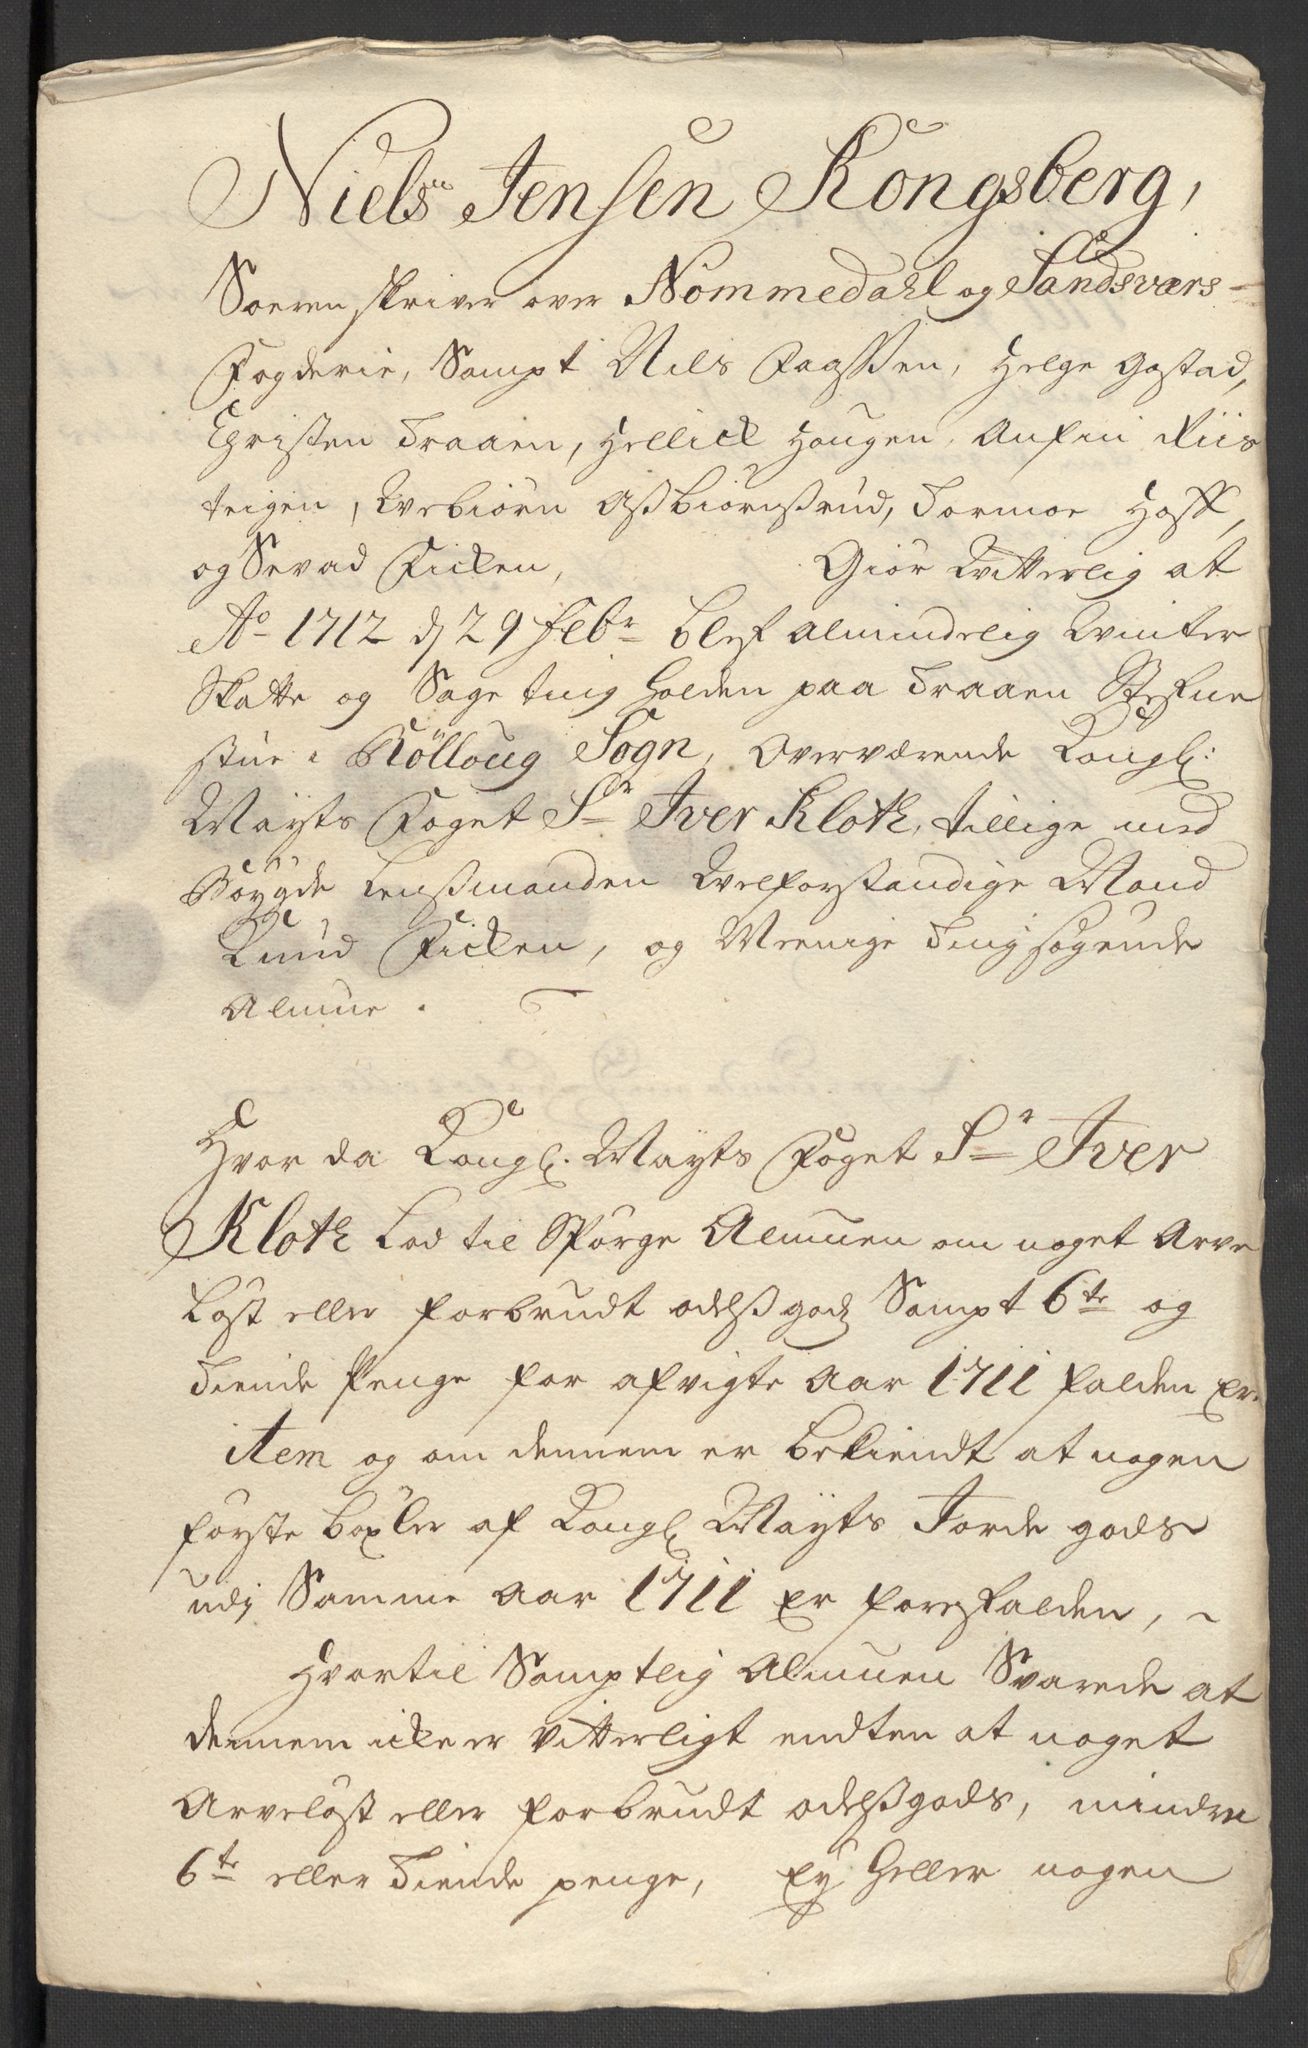 Niels Jensen Kongsberg,
Sorenskriver over Nommedahl og Sandsværs
Fogderie, Sampt Nils Faassen, Helge Gostad,
Christen Traaen, Hellick Hougen, Anfin Riis
teigen, Webiørn Assbiørnssrud, Tormoe Hoff,
og Sevad Ficken, Giør Witterlig at
Ao 1712 d 29 Febr blef almindelig Winter
Skatte og Sage ting holden paa Traaen Stefne
stue i Rølloug Sogn, Overværende Kongl:
Mayts Foget Sr Iver Kloth, tillige med
Bøygde Lenssmanden Welforstandige Mand
Knud Ficken, og Meenige Tingsøgende
Almue.
Hvor da Kongl. Mayts Foget Sr Iver
Kloth Lod til Spørge Almuen om noget Arve
Løst eller forbrudt odelss godz Sampt 6te og
Tiende Penge for afvigte Aar 1711 falden Er.
item og om dennem er bekiendt at nogen
første böxler af Kongl Mayts Jorde gods
udj Samme Aar 1711 Er forefalden,
Hvortil Samptlig Almuen Svarede at
dennem icke er Vitterligt endten at noget
Arveløst eller forbrudt odelssgods, mindre
6te eller Tiende penge, Ey heller nogen